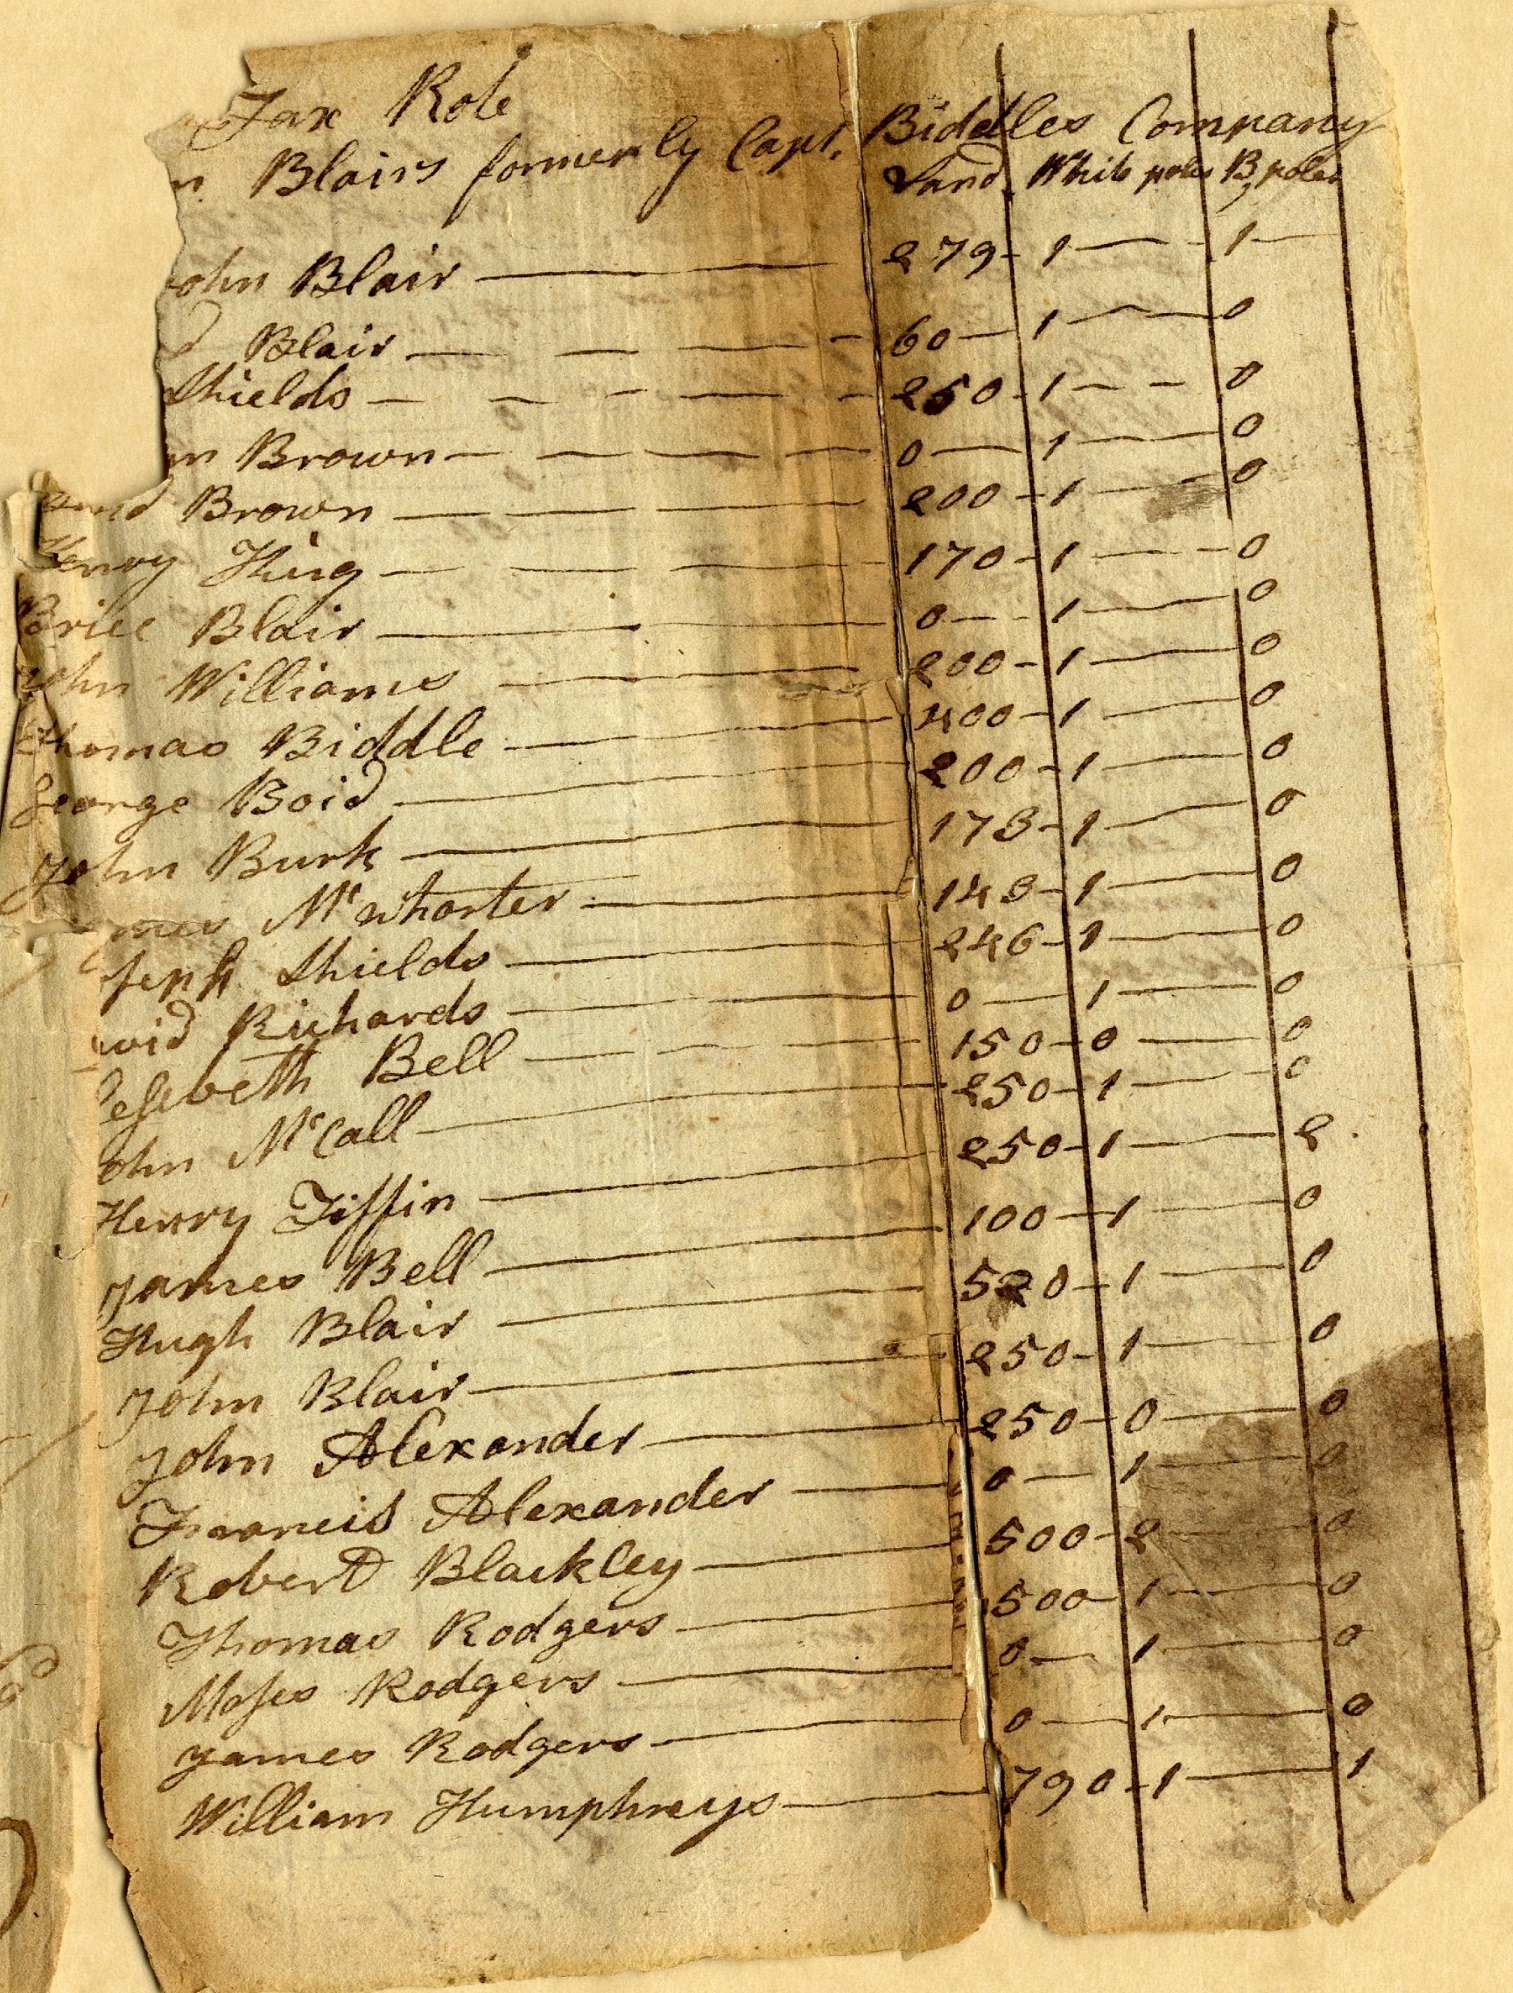 Tax Role
Blairs formerly Capt. Biddles Company
Land White poles B, poles
ohn Blair 279 1 1
Blair 60 1 0
Shields 250 1 0
n Brown 0 1 0
Brown 200 1 0
Henry King 170 1 0
Brice Blair 0 1 0
John Williams 200 1 0
Thomas Biddle 400 1 0
George Boid 200 1 0
John Burk 173 1 0
mes Mcwhorter 143 1 0
seph Shields 246 1 0
avid Richards 0 1 0
Bell 150 0 0
ohn McCall 250 1 0
Henry Tiffin 250 1 2
James Bell 100 1 0
Hugh Blair 520 1 0
John Blair 250 1 0
John Alexander 250 0 0
Francis Alexander 0 1 0
Robert Blackley 500 2 0
Thomas Rodgers 500 1 0
Moses Rodgers 0 1 0
James Rodgers 0 1 0
William Humphreys 790 1 1